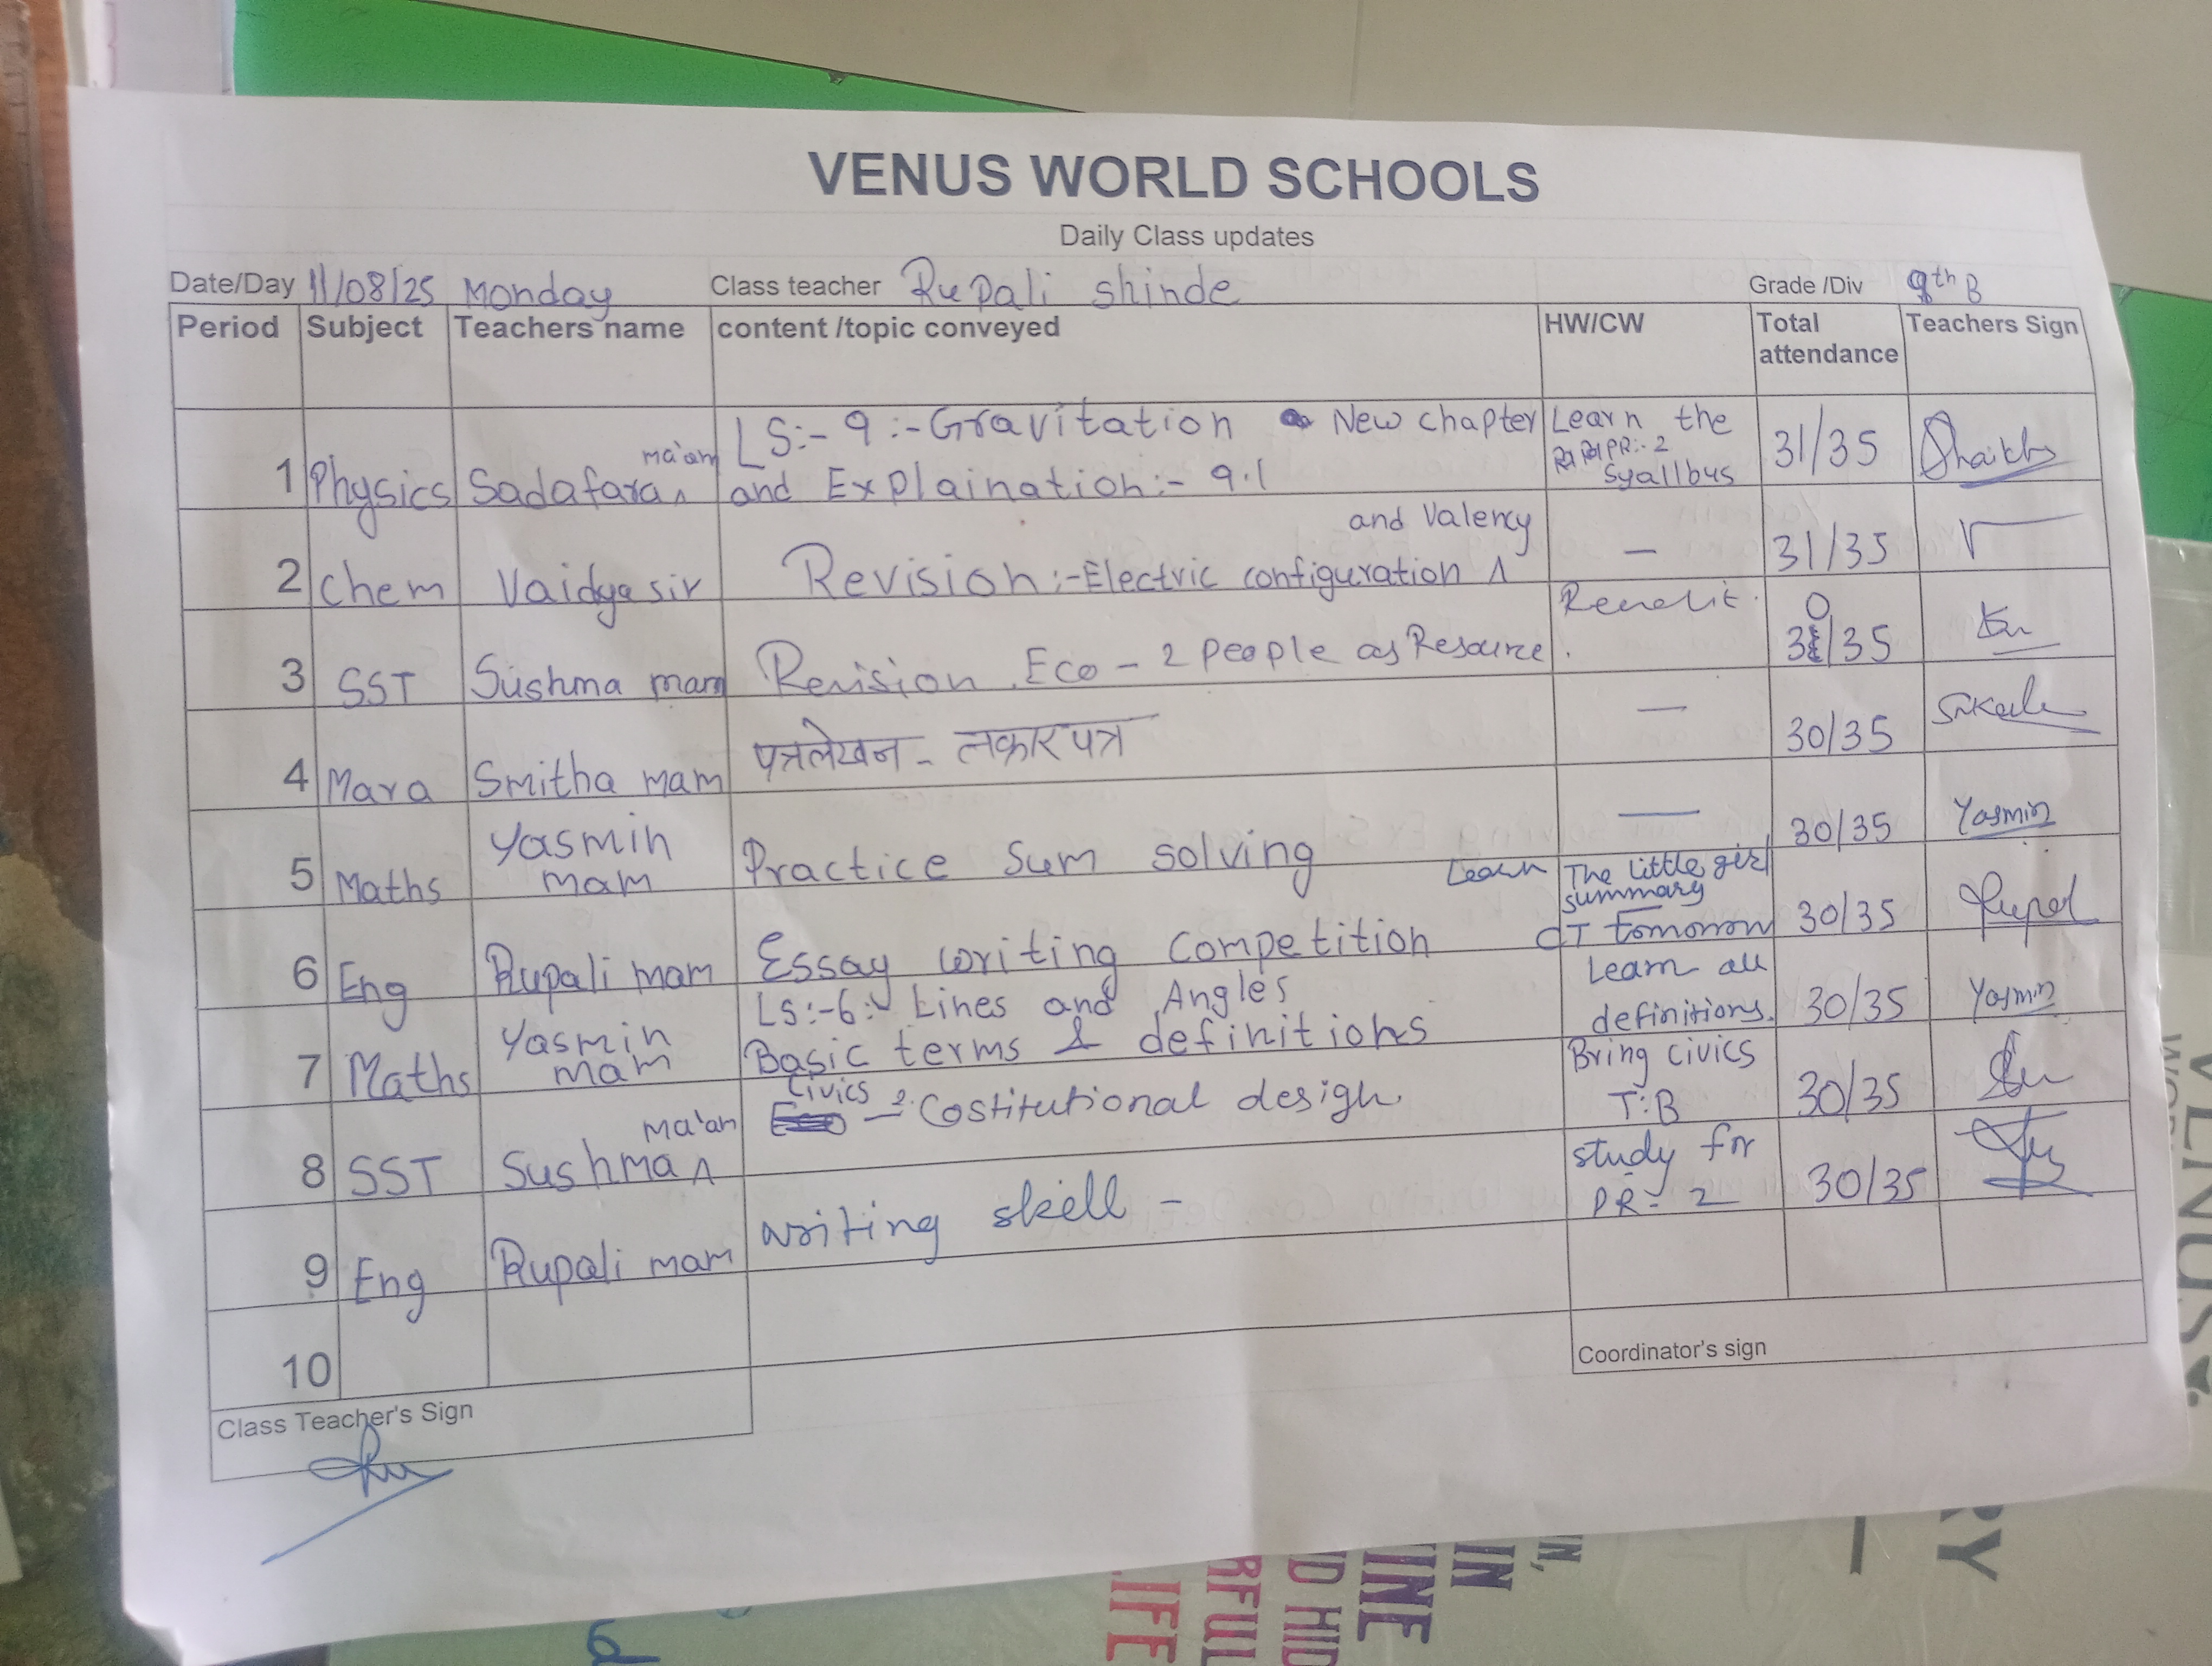 VENUS WORLD SCHOOLS
Daily Class updates
Date/Day 11/08/25 Monday Class teacher Rupali shinde Grade /Div 9th B
Period Subject Teachers name content /topic conveyed HW/CW Total attendance Teachers Sign
1 Physics Sadafara ma'am LS:- 9 :- Gravitation New chapter and Explaination:- 9.1 Learn the PR:- 2 Syallbus 31/35 Shaikh
2 Chem Vaidya sir Revision:- Electric configuration and Valency — 31/35
3 SST Sushma mam Revision Eco - 2 People as Resource. 30/35
4 Mara Smitha mam पत्रलेखन - तक्रार पत्र — 30/35
5 Maths Yasmin mam Practice sum solving — 30/35 Yasmin
6 Eng Rupali mam Essay writing Competition Learn The little girl summary CT tomorrow 30/35 Rupal
7 Maths Yasmin mam LS:-6:- Lines and Angles Basic terms & definitions Learn all definitions. 30/35 Yasmin
8 SST Sushma ma'am Civics - 2. Costitutional design. Bring civics T:B 30/35
9 Eng Rupali mam writing skill - study for PR:- 2 30/35
10
Class Teacher's Sign
Coordinator's sign
VENUS
WOR
RY
IN,
IN
VINE
ND HID
RFUL
LIFE